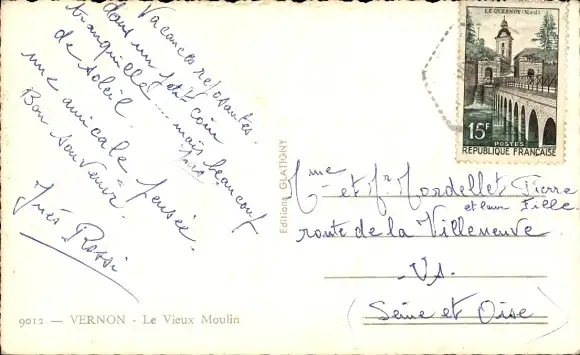 Vacances reposantes.
dans un petit coin
tranquille... mais beaucoup
pas
de soleil.
une amicale pensée.
Bon souvenir.
Inès Rossi
9012 — VERNON - Le Vieux Moulin
Editions GLATIGNY
LE QUESNOY (Nord)
15F
POSTES
REPUBLIQUE FRANÇAISE
Mme et Mr Mordellet Pierre
et leur Fille.
route de la Villeneuve
- Us -
(Seine et Oise)